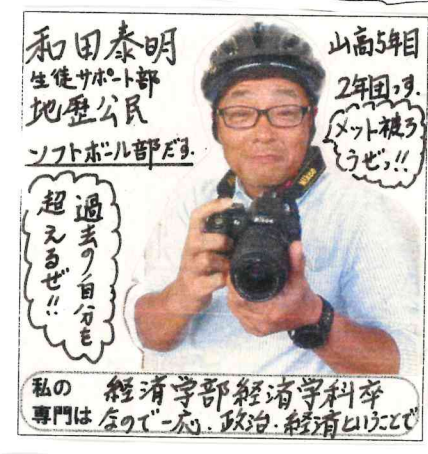 和田泰明
生徒サポート部
地歴公民
ソフトボール部だす.
山高5年目
2年団っす.
メット被ろ
うぜっ!!
過去の自分を
超えるぜ!!
Nikon
Nikon
私の
専門は
経済学部経済学科卒
なので一応・政治・経済ということで